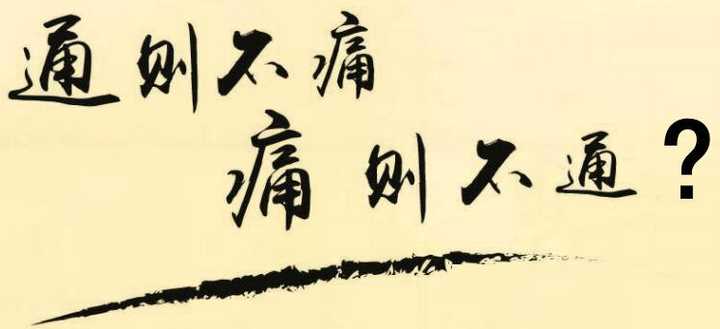 通则不痛
痛则不通?